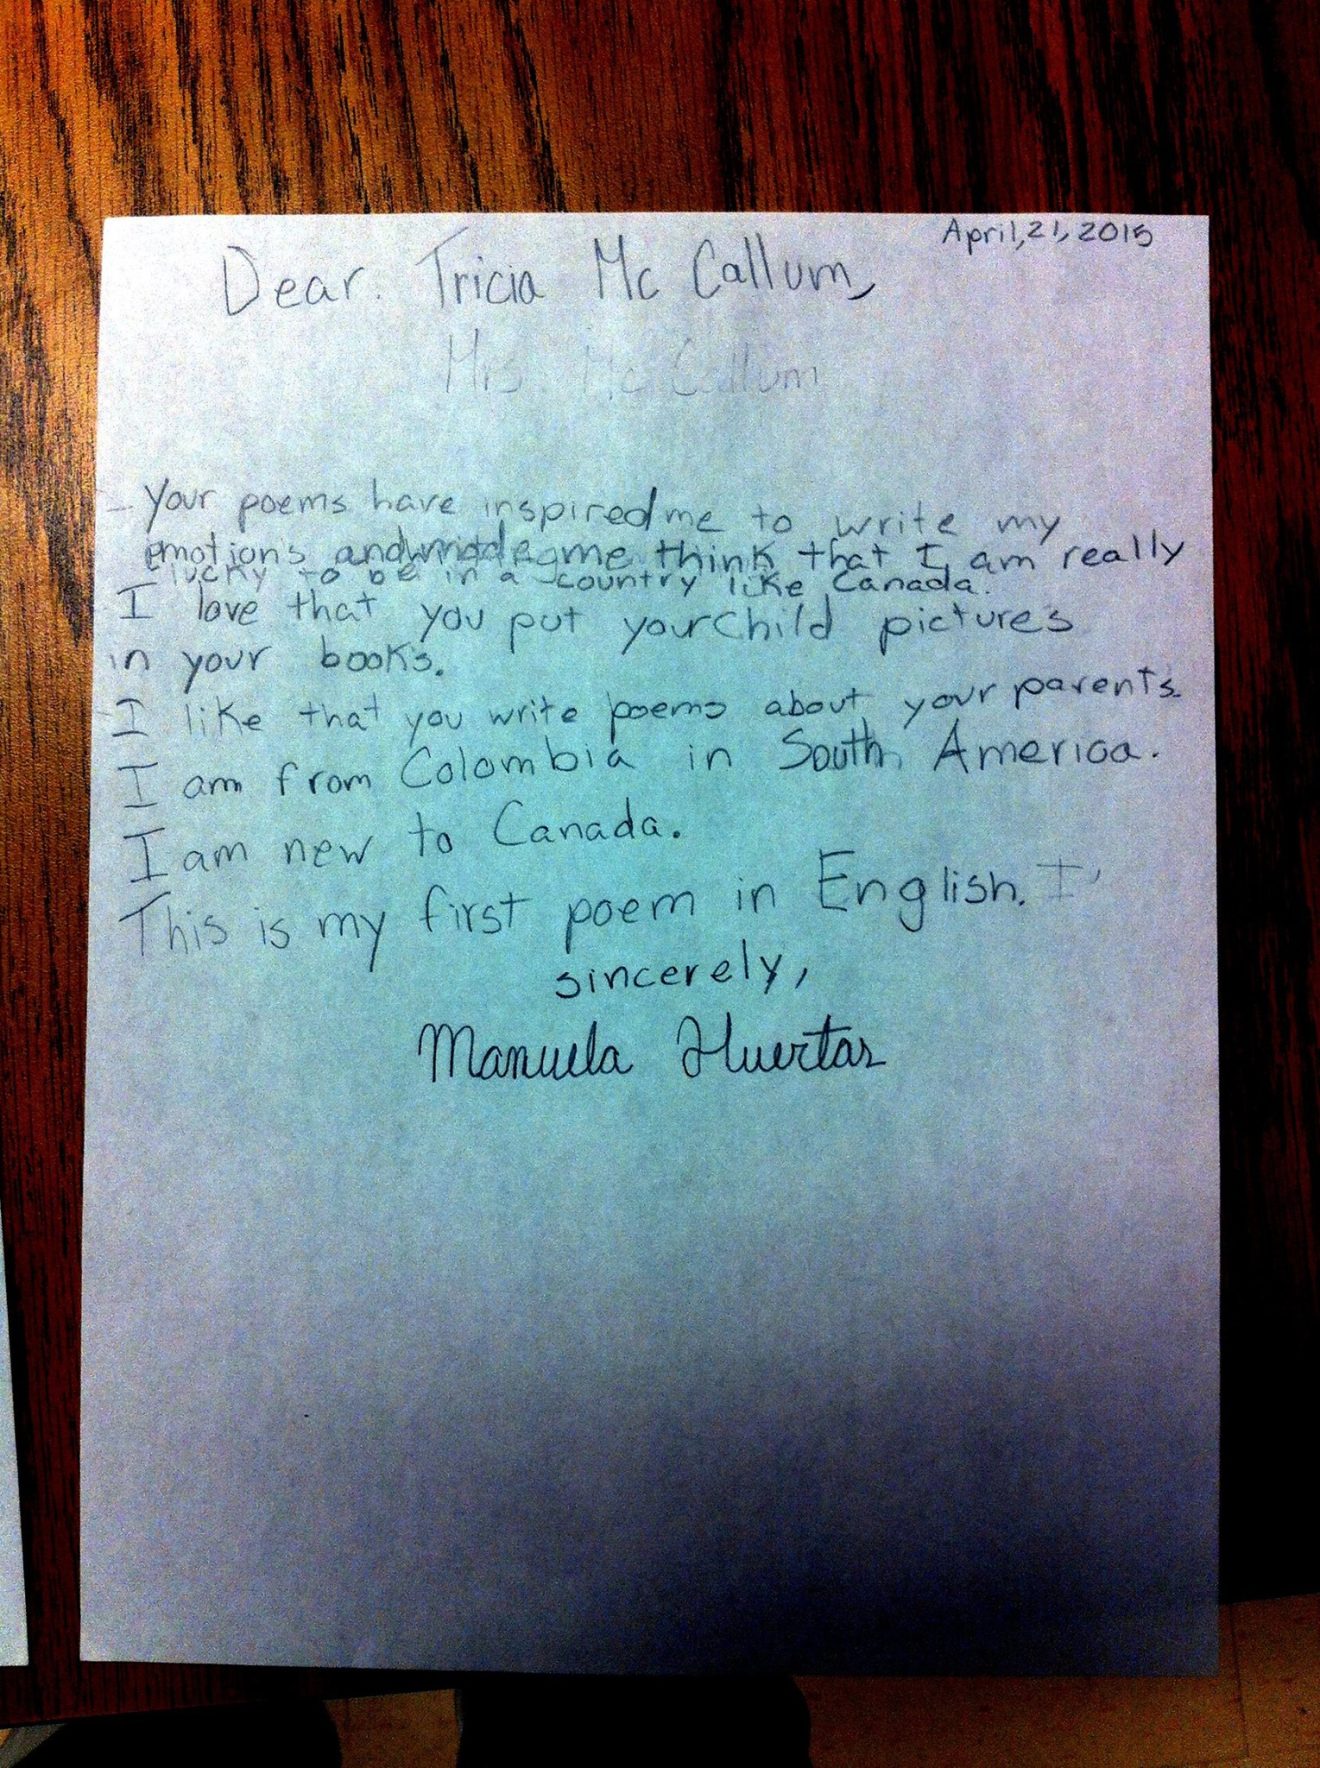 April, 21, 2015
Dear. Tricia Mc Callum,
Mrs. Mc Callum
- Your poems have inspired me to write my
emotions and made me think that I am really
lucky to be in a country like Canada.
I love that you put your child pictures
in your books.
- I like that you write poems about your parents.
I am from Colombia in South America.
I am new to Canada.
This is my first poem in English. I
sincerely,
Manuela Huertas